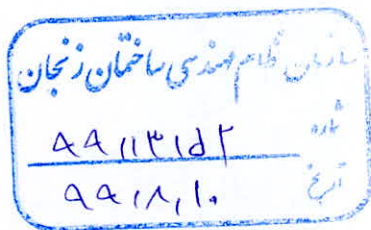 سازمان نظام مهندسی ساختمان زنجان
شماره ۹۹۱۱۳۱۵۲
تاریخ ۹۹،۸،۱۰